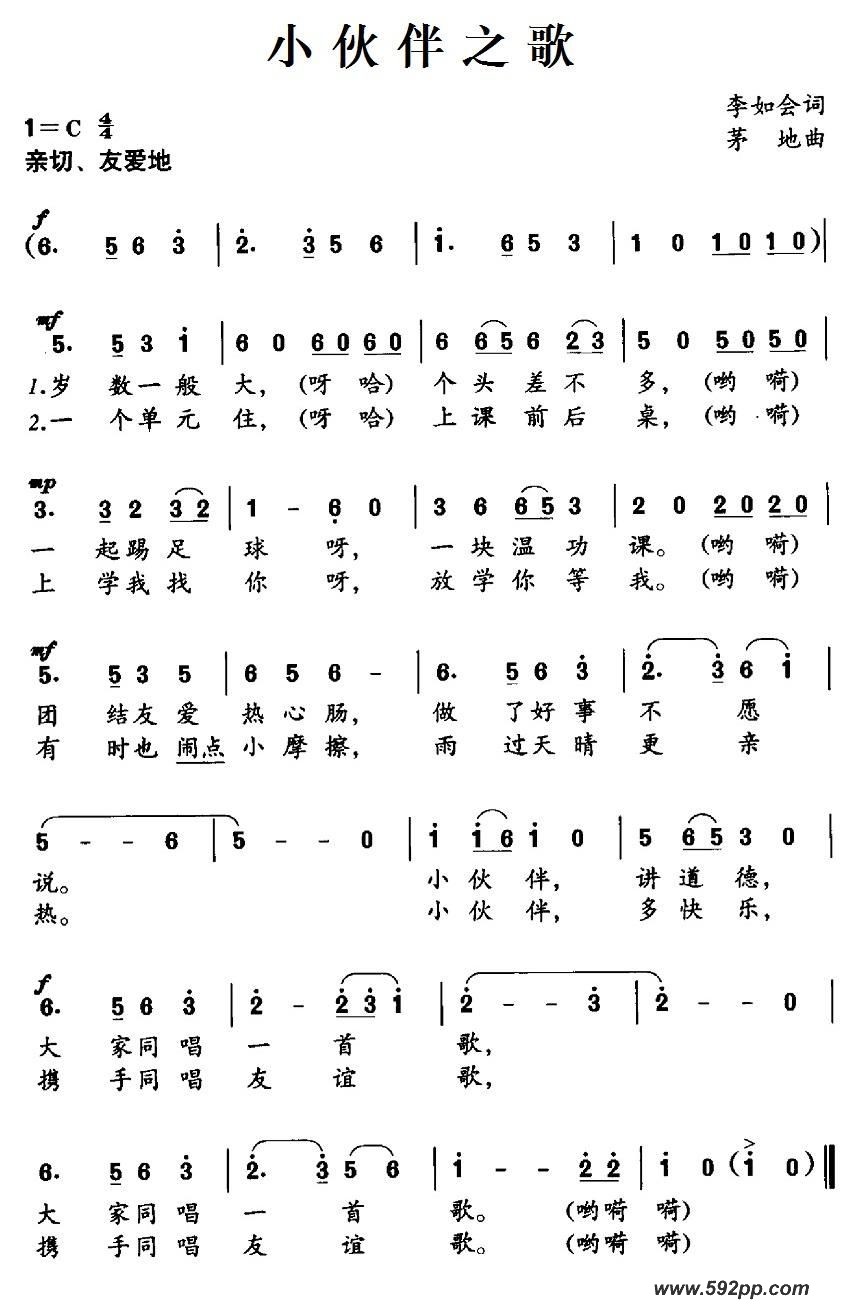 小伙伴之歌
1=C 4/4
李如会词
茅 地曲
亲切、友爱地
f
(6. 5 6 3̇ | 2̇. 3̇ 5 6 | 1̇. 6 5 3 | 1 0 1 0 1 0)|
mf
5. 5 3 1̇ | 6 0 6 0 6 0 | 6 6 5 6 2 3 | 5 0 5 0 5 0 |
1.岁 数一般 大，(呀 哈) 个头差不 多，(哟 嗬)
2.一 个单元 住，(呀 哈) 上课前后 桌，(哟 嗬)
mp
3. 3 2 3 2 | 1 - 6̣ 0 | 3 6 6 5 3 | 2 0 2 0 2 0 |
一 起踢足 球 呀， 一块温功 课。(哟 嗬)
上 学我找 你 呀， 放学你等 我。(哟 嗬)
mf
5. 5 3 5 | 6 5 6 - | 6. 5 6 3̇ | 2̇. 3̇ 6 1̇ |
团 结友爱 热心肠， 做 了好事 不 愿
有 时也闹点小摩擦， 雨 过天晴 更 亲
5 - - 6 | 5 - - 0 | 1̇ 1̇ 6 1̇ 0 | 5 6 5 3 0 |
说。 小伙伴， 讲道德，
热。 小伙伴， 多快乐，
f
6. 5 6 3̇ | 2̇ - 2̇ 3̇ 1̇ | 2̇ - - 3̇ | 2̇ - - 0 |
大 家同唱 一 首 歌，
携 手同唱 友 谊 歌，
6. 5 6 3̇ | 2̇. 3̇ 5 6 | 1̇ - - 2̇ 2̇ | 1̇ 0 (1̇ 0) ‖
大 家同唱 一 首 歌。 (哟嗬 嗬)
携 手同唱 友 谊 歌。 (哟嗬 嗬)
www.592pp.com